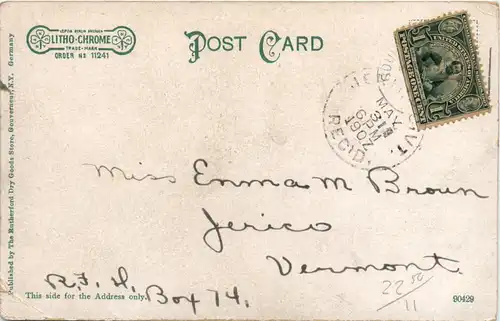 LEIPZIG BERLIN DRESDEN
LITHO-CHROME
TRADE-MARK
ORDER № 11241
POST CARD
MAY
31
6PM
1907
REC'D.
VT.
Published by The Rutherford Dry Goods Store, Gouverneur, N.Y. Germany
Miss Emma M Brown
Jerico
Vermont.
R.F.D.
Box 74.
This side for the Address only.
22 50
11
90429